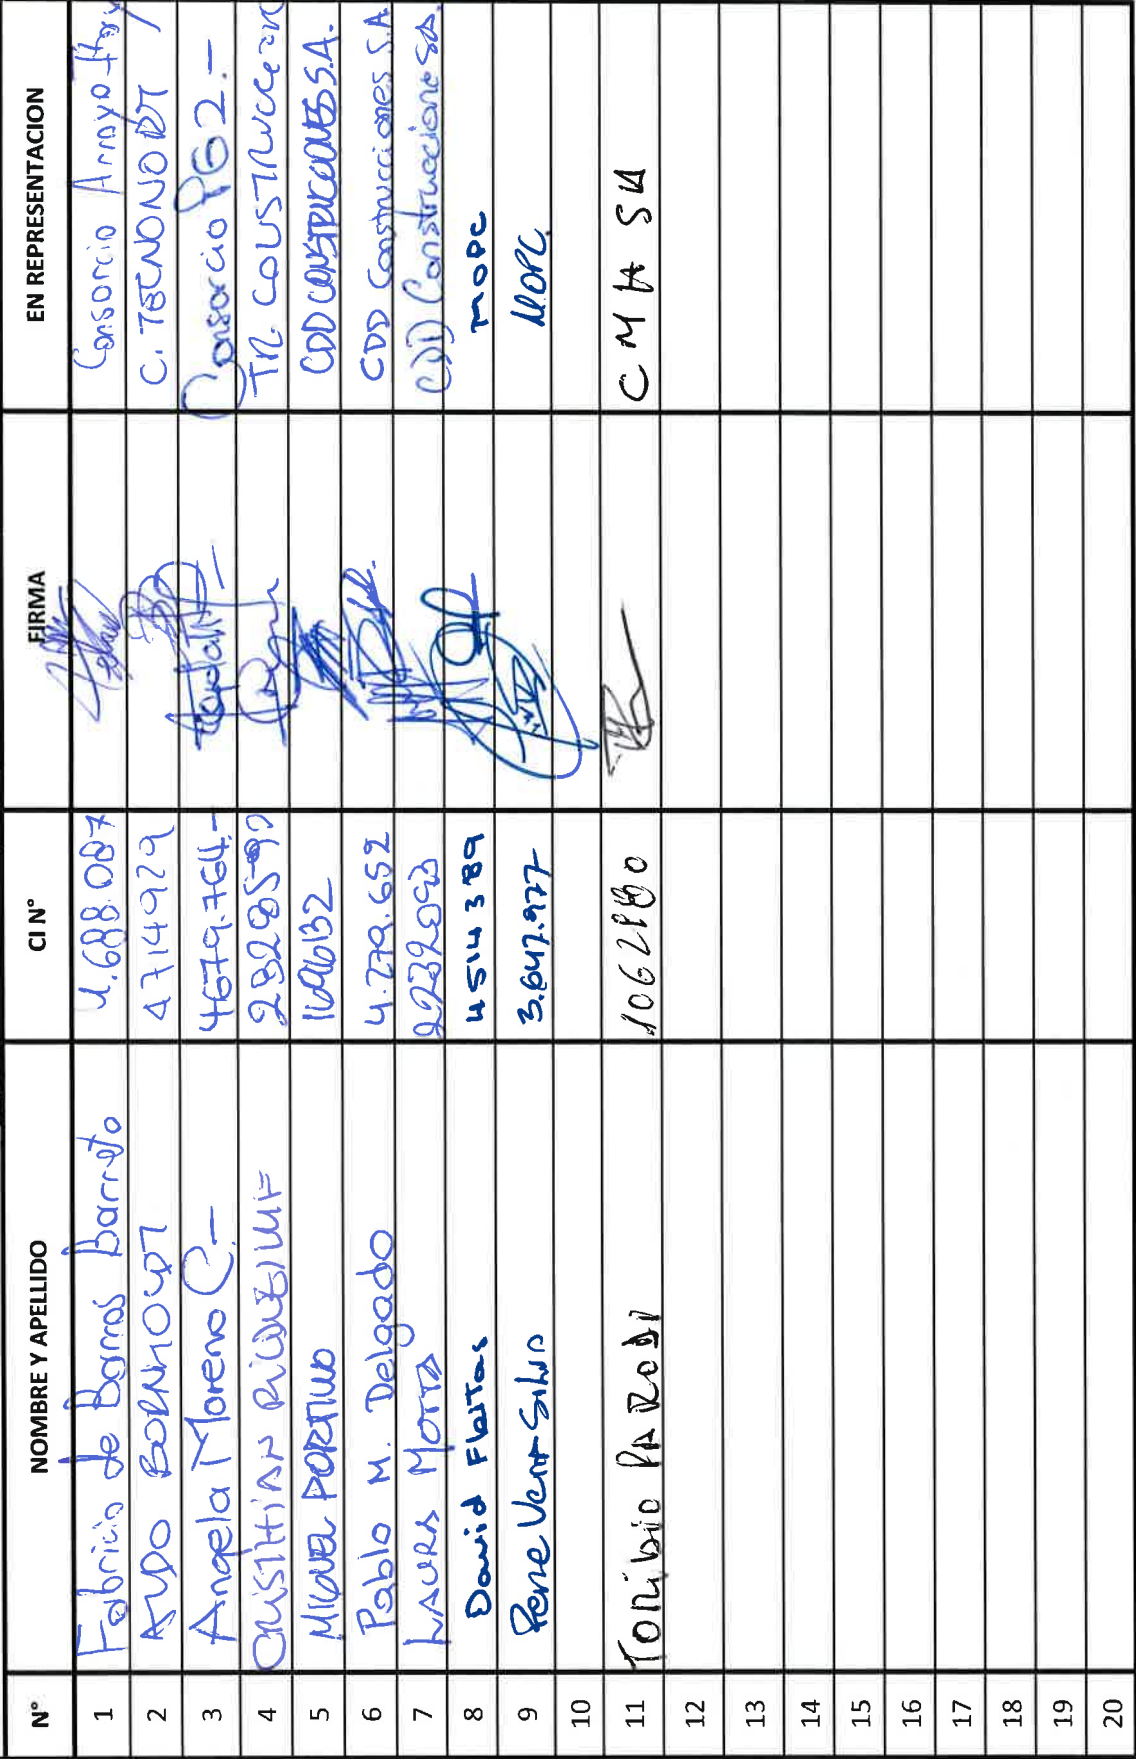 N° NOMBRE Y APELLIDO CI N° FIRMA EN REPRESENTACION
1 Fabricio de Barros Barreto 4.688.087 Consorcio Arroyo
2 4714929 C. TECNONORT
3 Angela Moreno C.- 4679.764.- Consorcio P62.-
4 CRISTHIAN TR. CONSTRUCCION
5 MIGUEL PORTILLO CDD CONSTRUCCIONES S.A.
6 Pablo M. Delgado 4.279.652 CDD Construcciones S.A
7 LAURA MOTTA CDD Construcciones SA.
8 David Fleitas 4514389 MOPC
9 Rene Vera Silva 3.647.977 MOPC
10
11 Toribio PARODI CMHSA
12
13
14
15
16
17
18
19
20